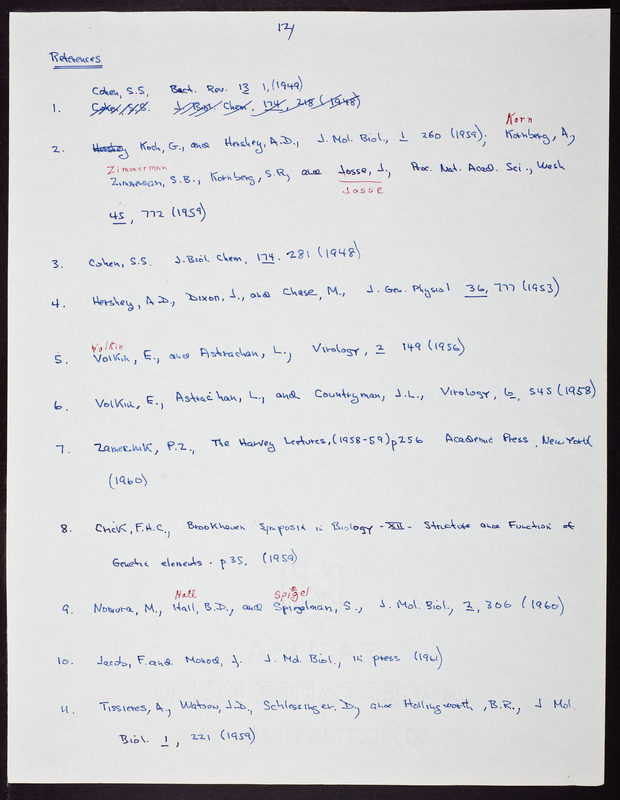 12/
References
Cohen, S.S., Bact. Rov. 13 1, (1949)
1. Cohen, S.S. J. Biol Chem, 174, 218 (1948)
Korn
2. Hershey Koch, G., and Hershey, A.D., J. Mol. Biol., 1 260 (1959); Kornberg, A.,
Zimmerman
Zimmerman, S.B., Kornberg, S.R, and Josse, J., Proc. Nat. Acad. Sci., Wash
Josse
45, 772 (1959)
3. Cohen, S.S. J. Biol. Chem, 174. 281 (1948)
4. Hershey, A.D., Dixon, J., and Chase, M., J. Gen. Physiol 36, 777 (1953)
Volkin
5. Volkin, E., and Astrachan, L., Virology, 2 149 (1956)
6. Volkin, E., Astrachan, L., and Countryman, J.L., Virology, 6, 545 (1958)
7. Zamecnik, P.Z., The Harvey Lectures, (1958-59) p256 Academic Press, New York
(1960)
8. Crick, F.H.C., Brookhaven Symposia in Biology - XII - Structure and Function of
Genetic elements. p 35. (1959)
Hall Spigel
9. Nomura, M., Hall, B.D., and Spiegelman, S., J. Mol. Biol., 2, 306 (1960)
10. Jacob, F. and Monod, J. J. Mol. Biol., in press (1961)
11. Tissieres, A., Watson, J.D., Schlessinger, D., and Hollingworth, B.R., J Mol.
Biol. 1, 221 (1959)